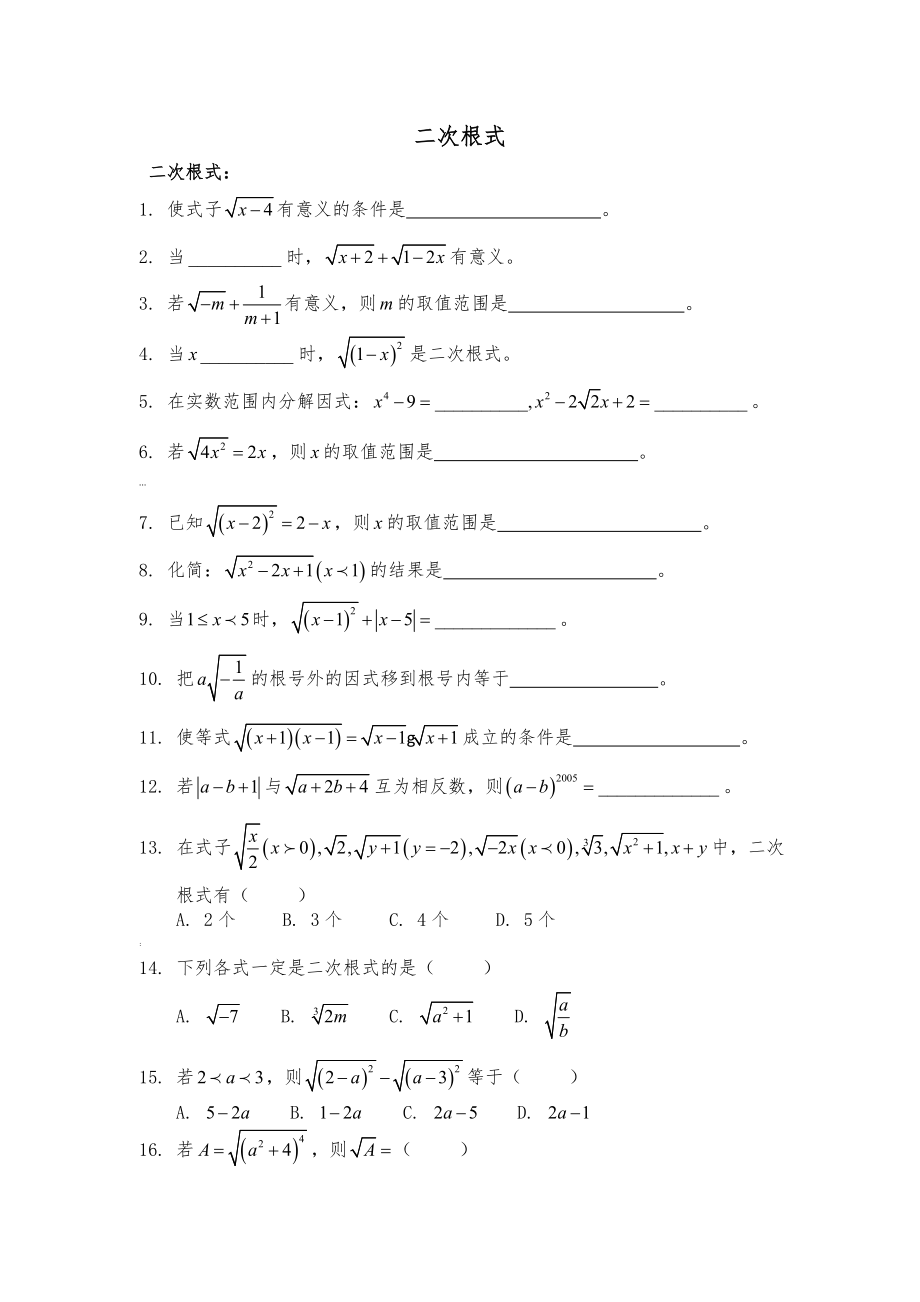 二次根式
二次根式：
1. 使式子√(x−4)有意义的条件是____________________。
2. 当__________时，√(x+2)+√(1−2x)有意义。
3. 若√(−m)+1/(m+1)有意义，则m的取值范围是__________________。
4. 当x__________时，√((1−x)²)是二次根式。
5. 在实数范围内分解因式：x⁴−9=__________,x²−2√2x+2=__________。
6. 若√(4x²)=2x，则x的取值范围是_____________________。
...
7. 已知√((x−2)²)=2−x，则x的取值范围是_____________________。
8. 化简：√(x²−2x+1)(x≺1)的结果是______________________。
9. 当1≤x≺5时，√((x−1)²)+|x−5|=_____________。
10. 把a√(−1/a)的根号外的因式移到根号内等于_______________。
11. 使等式√((x+1)(x−1))=√(x−1)g√(x+1)成立的条件是_________________。
12. 若|a−b+1|与√(a+2b+4)互为相反数，则(a−b)²⁰⁰⁵=_____________。
13. 在式子√(x/2)(x≻0),√2,√(y+1)(y=−2),√(−2x)(x≺0),∛3,√(x²+1),x+y中，二次
根式有（ ）
A. 2个 B. 3个 C. 4个 D. 5个
:
14. 下列各式一定是二次根式的是（ ）
A. √(−7) B. ∛(2m) C. √(a²+1) D. √(a/b)
15. 若2≺a≺3，则√((2−a)²)−√((a−3)²)等于（ ）
A. 5−2a B. 1−2a C. 2a−5 D. 2a−1
16. 若A=√((a²+4)⁴)，则√A=（ ）